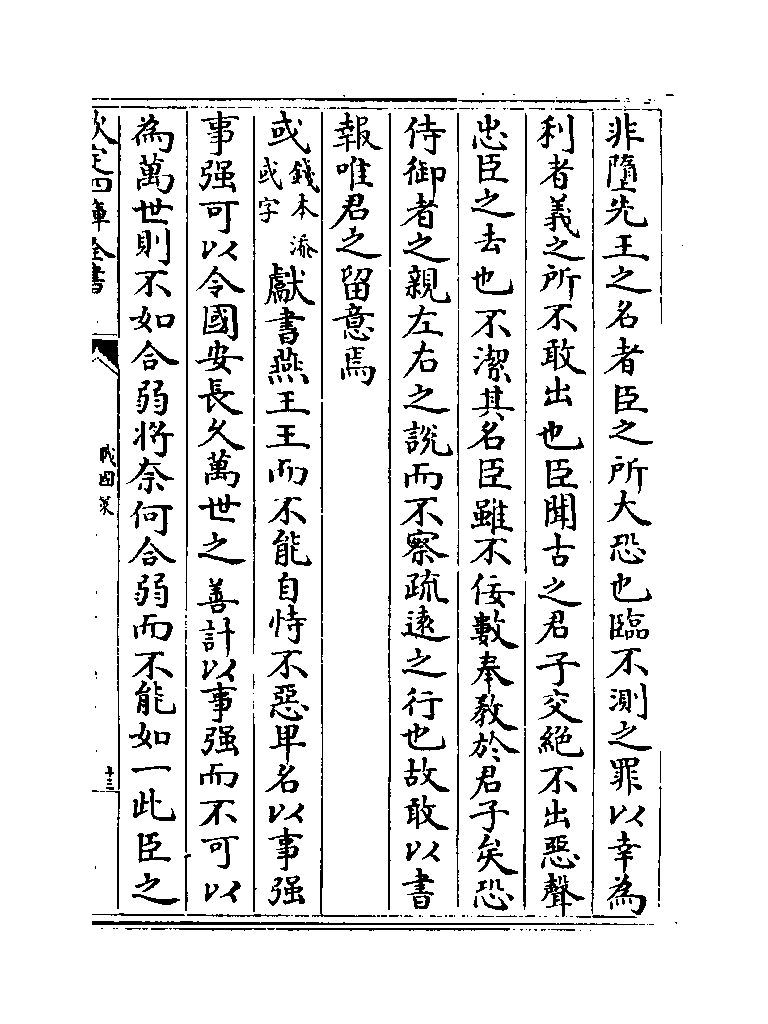 非墮先王之名者臣之所大恐也臨不測之罪以幸為
利者義之所不敢出也臣聞古之君子交絶不出惡聲
忠臣之去也不潔其名臣雖不佞數奉教於君子矣恐
侍御者之親左右之說而不察疏逺之行也故敢以書
報唯君之留意焉
或錢本添或字獻書燕王王而不能自恃不惡卑名以事强
事强可以令國安長久萬世之善計以事强而不可以
為萬世則不如合弱將奈何合弱而不能如一此臣之
欽定四庫全書
戰國策
十三